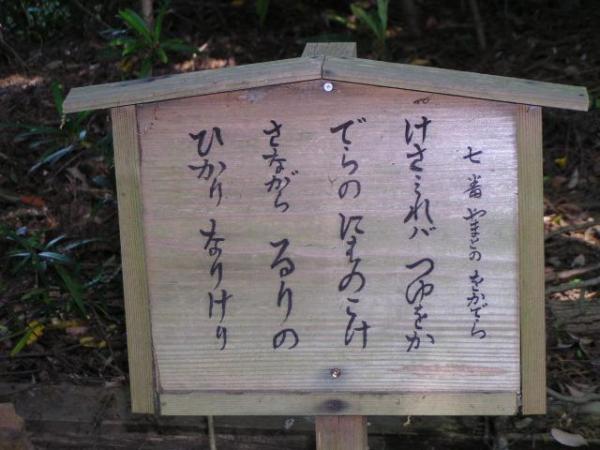 七番 やまとの をかでら
けさみれバ つゆをか
でらの にわのこけ
さながら るりの
ひかり なりけり